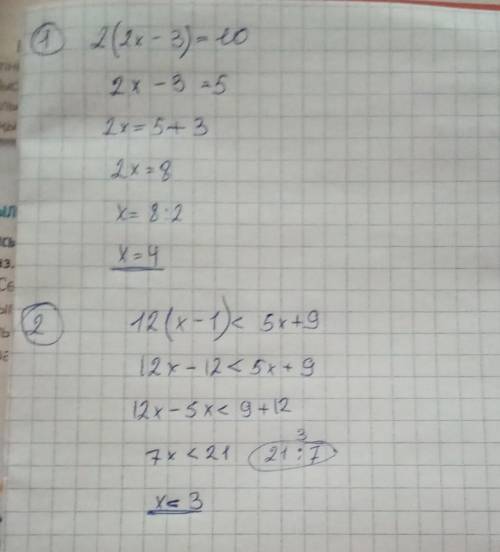 1 2(2x-3)=10
2x-3=5
2x=5+3
2x=8
x=8:2
x=4
2 12(x-1)< 5x+9
12x-12<5x+9
12x-5x<9+12
7x<21 21:7 3
x<3